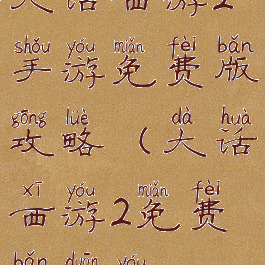 大话西游2
shǒu yóu miǎn fèi bǎn
手游免费版
gōng lüè dà huà
攻略（大话
xī yóu miǎn fèi
西游2免费
bǎn duān yóu